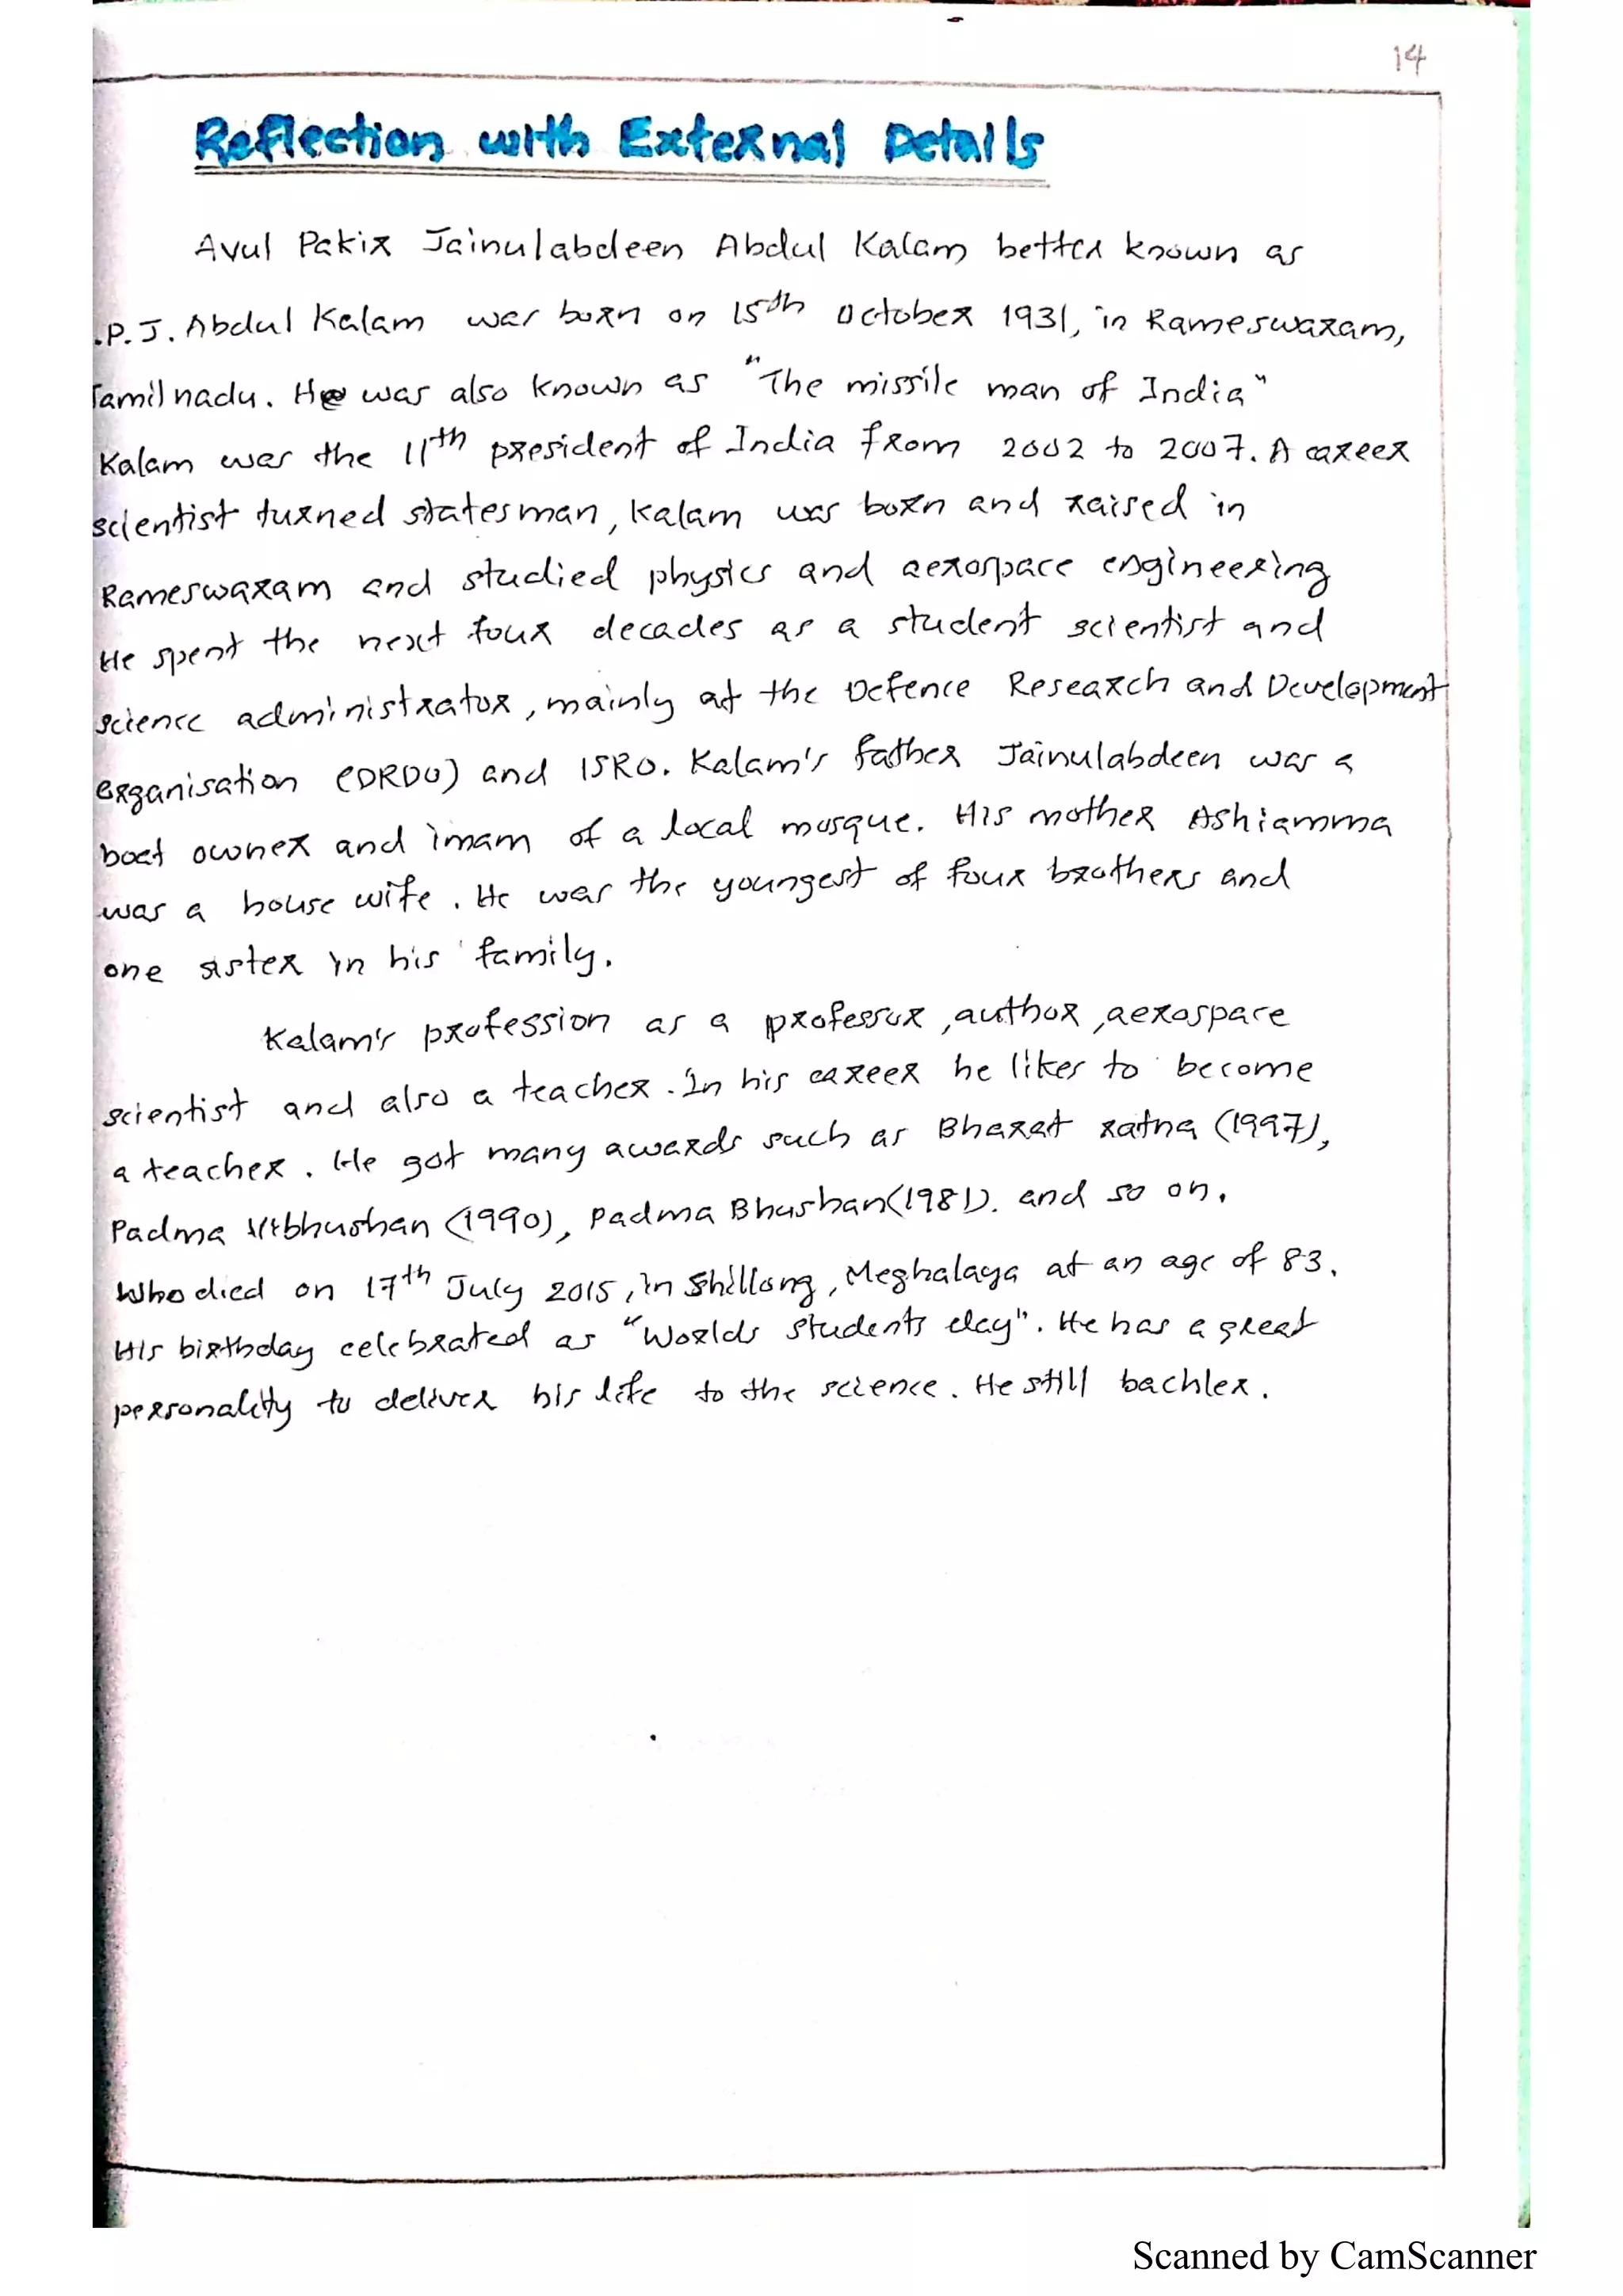 14
Reflection with External Details
Avul Pakir Jainulabdeen Abdul Kalam better known as
.P.J. Abdul Kalam was born on 15th October 1931, in Rameswaram,
Tamilnadu. He was also known as "The missile man of India"
Kalam was the 11th president of India from 2002 to 2007. A career
scientist turned statesman, Kalam was born and raised in
Rameswaram and studied physics and aerospace engineering
He spent the next four decades as a student scientist and
science administrator, mainly at the Defence Research and Development
Organisation (DRDO) and ISRO. Kalam's father Jainulabdeen was a
boat owner and imam of a local mosque. His mother Ashiamma
was a house wife. He was the youngest of four brothers and
one sister in his family.
Kalam's profession as a professor, author, aerospace
scientist and also a teacher. In his career he likes to become
a teacher. He got many awards such as Bharat ratna (1997),
Padma Vibhushan (1990), Padma Bhushan (1981). and so on.
Who died on 17th July 2015, in Shillong, Meghalaya at an age of 83.
His birthday celebrated as "Worlds Students day". He has a great
personality to deliver his life to the science. He still bachler.
Scanned by CamScanner